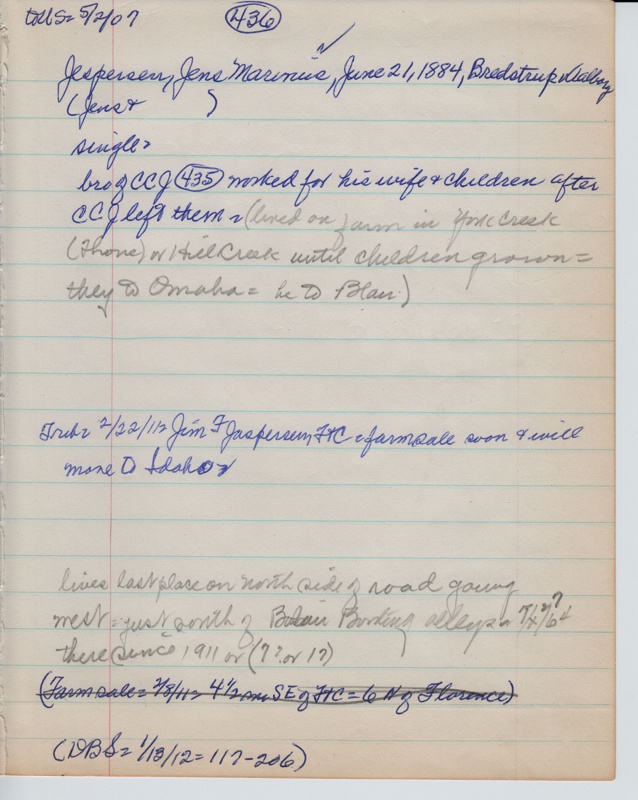 5/2/07
436
Jespersen, Jens Marinus, June 21, 1884, Bredstrup, Aalborg
(Jens & )
single =
bro of CCJ (435) worked for his wife & children after
CCJ left them = (lived on farm in York Creek
(Thone) or Mill Creek until children grown =
they to Omaha = he to Blair)
Trib = 2/22/11 = Jim F Jaspersen, FtC = farm sale soon & will
move to Idaho =
lives last place on north side of road going
west = just south of Blair Bowling alleys =
there since 1911 or (7? or 1?)
(Farm sale = 2/8/11 = 4 1/2 mi SE of FtC = 6 N of Florence)
(DBS = 1/13/12 = 117-206)